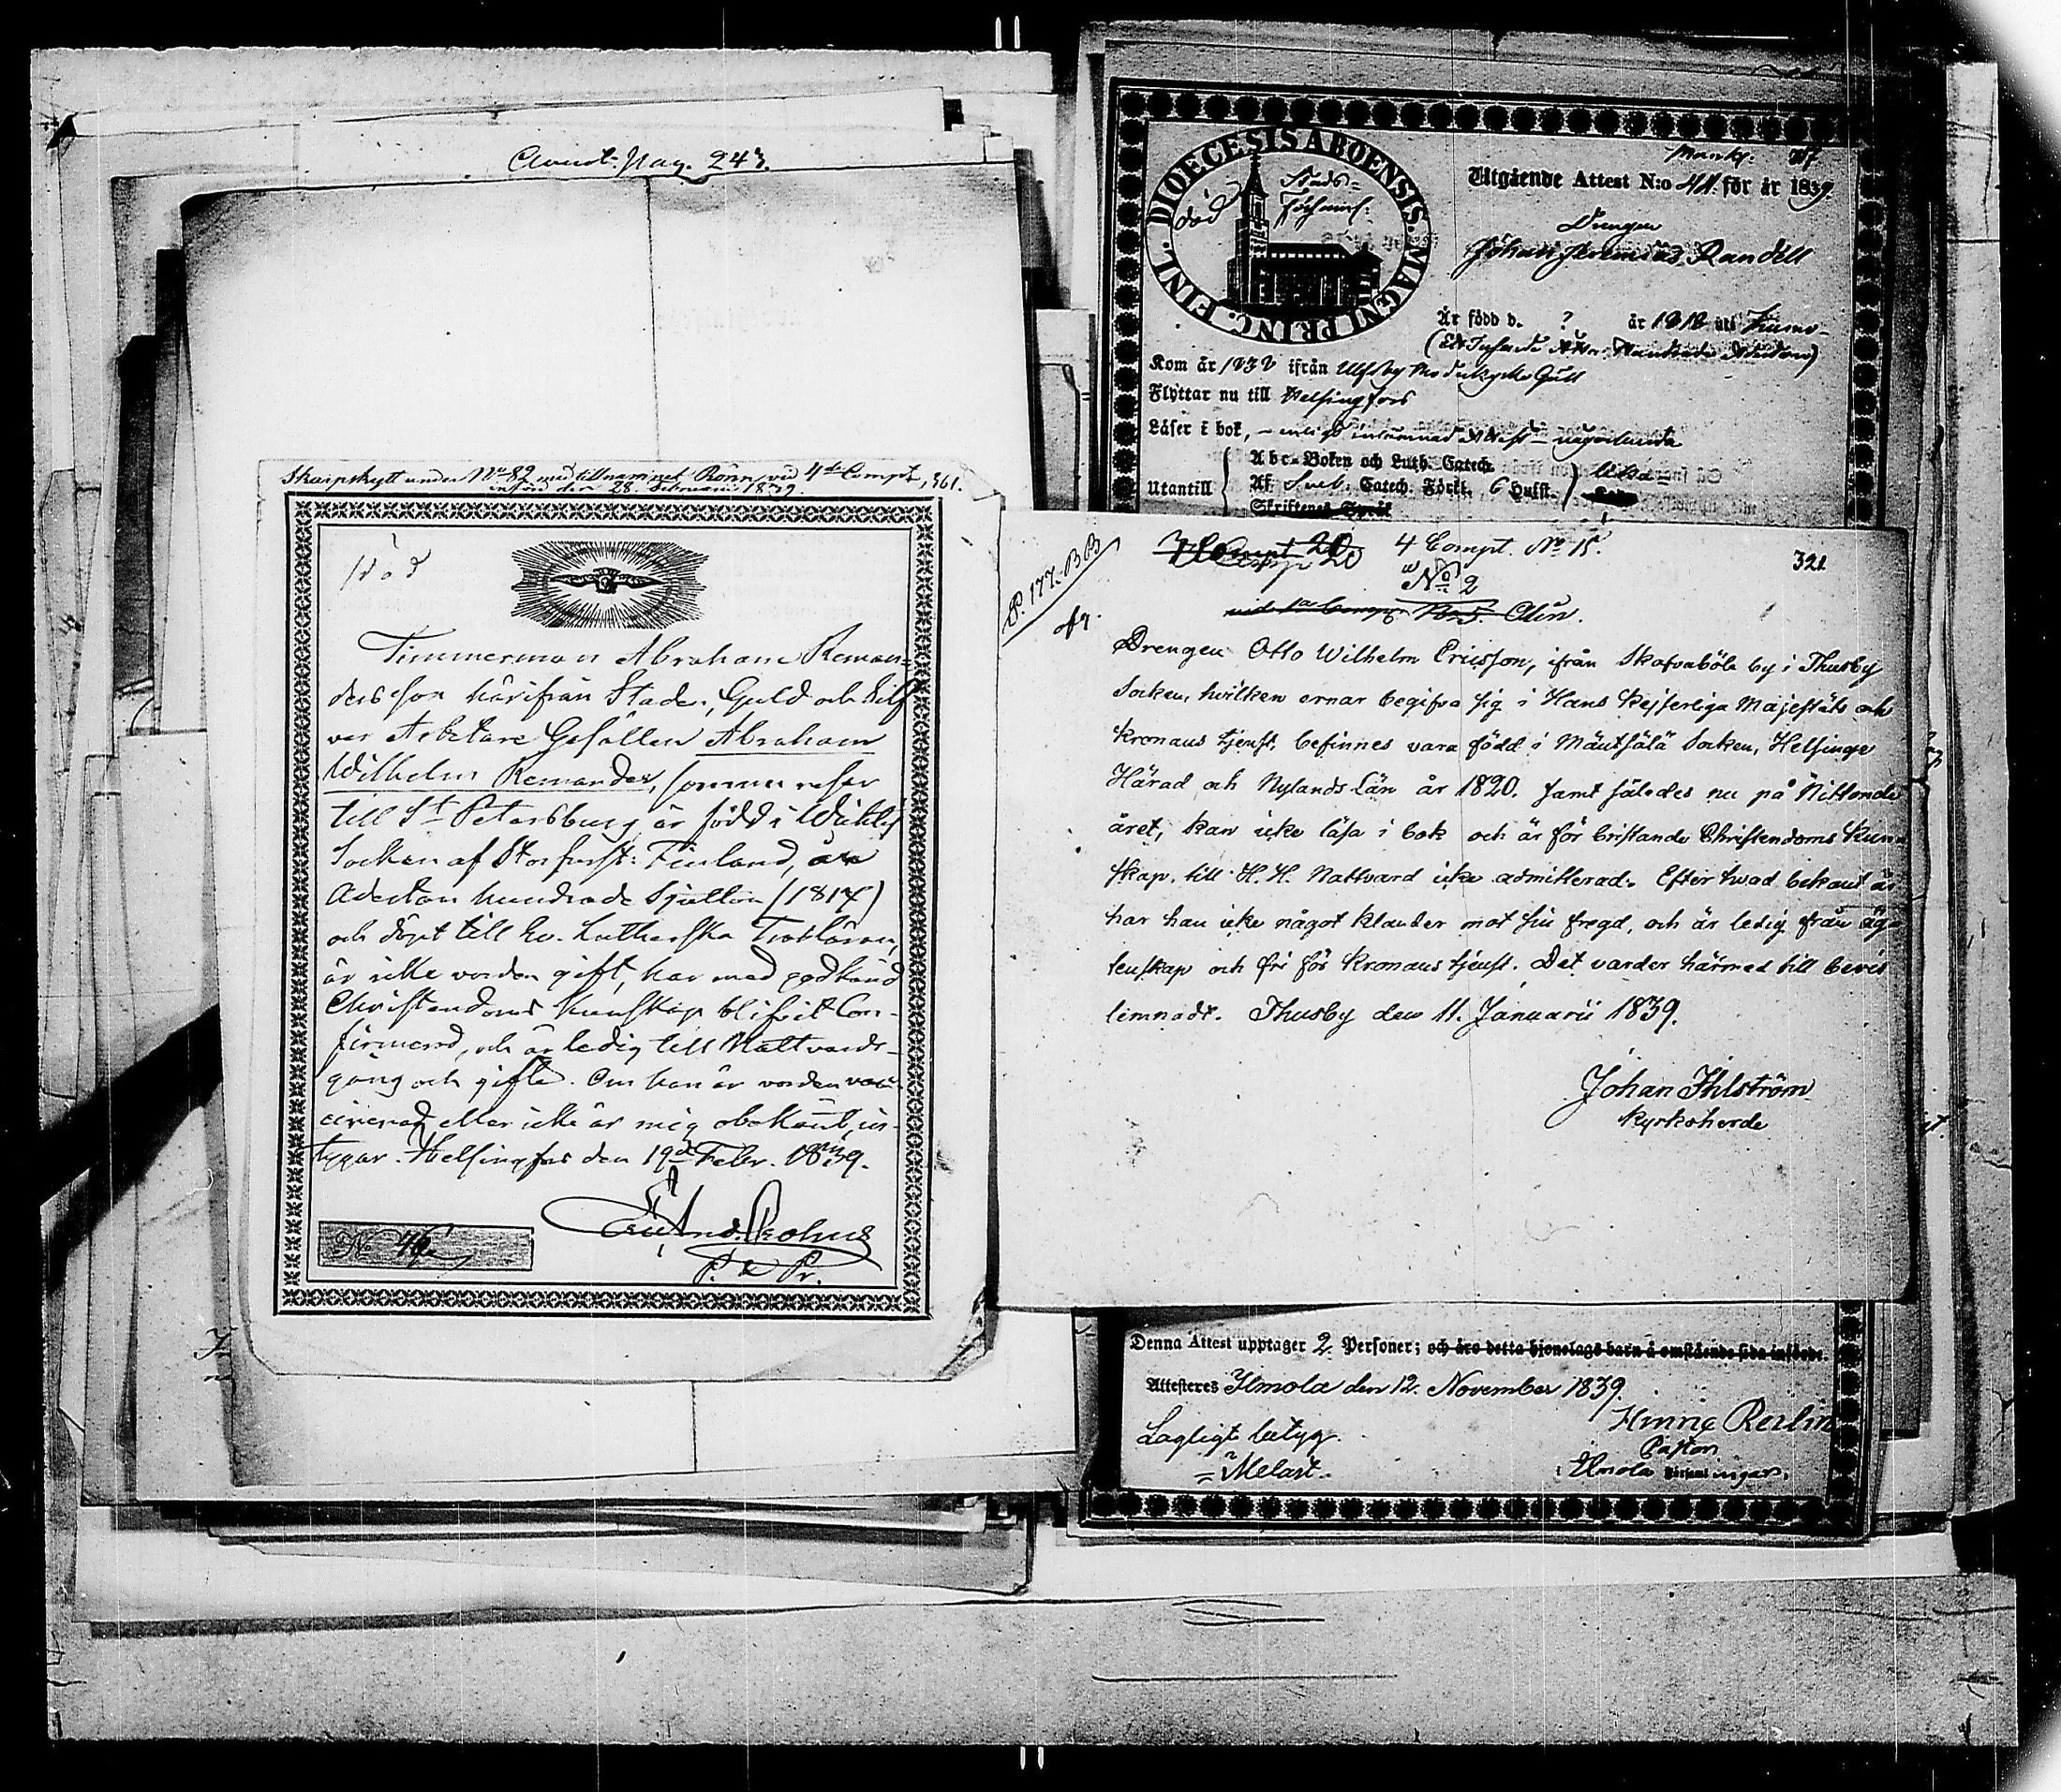 Pag. 243.
Skarpskytt under No 82 med tillnamnet Rönn vid 4de Compt, 361.
införd den 28. Februarii 1839.
död
Timmerman Abraham Reman-
ders son härifrån Staden, Guld och Silf-
ver Arbetare Gesällen Abraham
Wilhelm Remander, somm reser
till St Petersburg är född i Wichtis
Socken af Storfurst: Finland, år
Adertan hundrade Sjutton (1817)
och döpt till Ev. Lutherska Trosläran,
är icke vorden gift, har med godkänd
Christendoms kunskap blifvit Con-
firmerad, och är ledig till Nattvards-
gång och gifte. Om han är vorden vac-
cinerad eller icke är mig obekant, in-
tygar. Helsingfors den 19de Febr. 1839.
P. & Pr.
No 46
DIOECESIS ABOENSIS. MAGNI PRINC. FINL.
död
Utgående Attest N:o 41. för år 1839.
Drengen
Johan Jeremias Randell
Är född d. ? år 1818 uti Kumo
Kom år 1838 ifrån Ulfsby
Flyttar nu till Helsingfors
Läser i bok, någorlunda
Utantill
Abc-Boken och Luth. Catech.
Af Sveb. Catech. Förkl. 6 Hufst.
Skriftenes Språk
S. 177. BB
afg.
7 Compt 20 4 Compt. No 15. 321
No 2
Olin.
Drengen Otto Wilhelm Ericsson, ifrån Skafvaböle by i Thusby
Socken, hvilken ernar begifva sig i Hans Kejserliga Majestäts och
Kronans tjenst, befinnes vara född i Mäntsälä Socken, Helsinge
Härad och Nylands Län år 1820. Samt således nu på Nittonde
året, kan icke läsa i bok och är för bristande Christendoms Kun-
skap, till H. H. Nattvard icke admitterad. Efter hvad bekant är
har han icke något klander mot sin fregd, och är ledig från äg-
tenskap och fri för Kronans tjenst. Det varder härmed till bevis
limnadt. Thusby den 11. Januarii 1839.
Johan Ihlström
Kyrkoherde
Denna Attest upptager 2 Personer; och äro detta hjonelags barn å omstående sida införde.
Attesteres Ilmola den 12. November 1839.
Lagligt betyg.
Melart.
Pastor
Ilmola